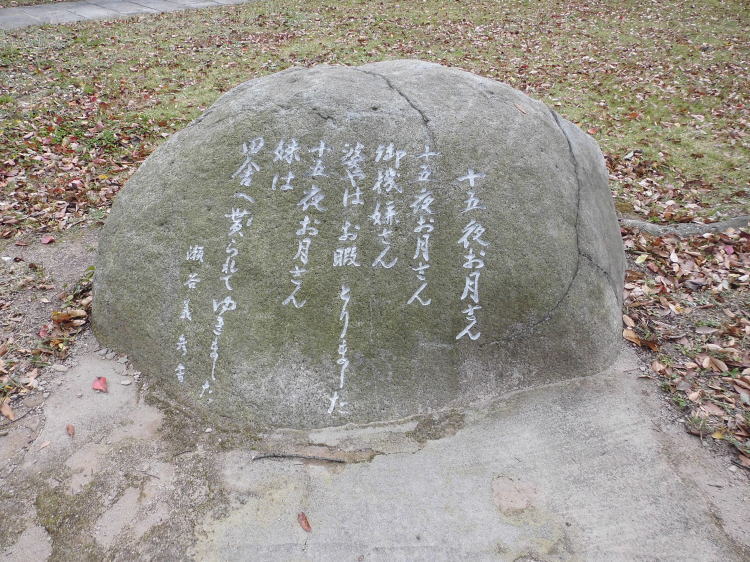 十五夜お月さん
十五夜お月さん
御機嫌さん
婆やは お暇 とりました
十五夜お月さん
妹は
田舎へ 貰られて ゆきました
瀬谷義彦書